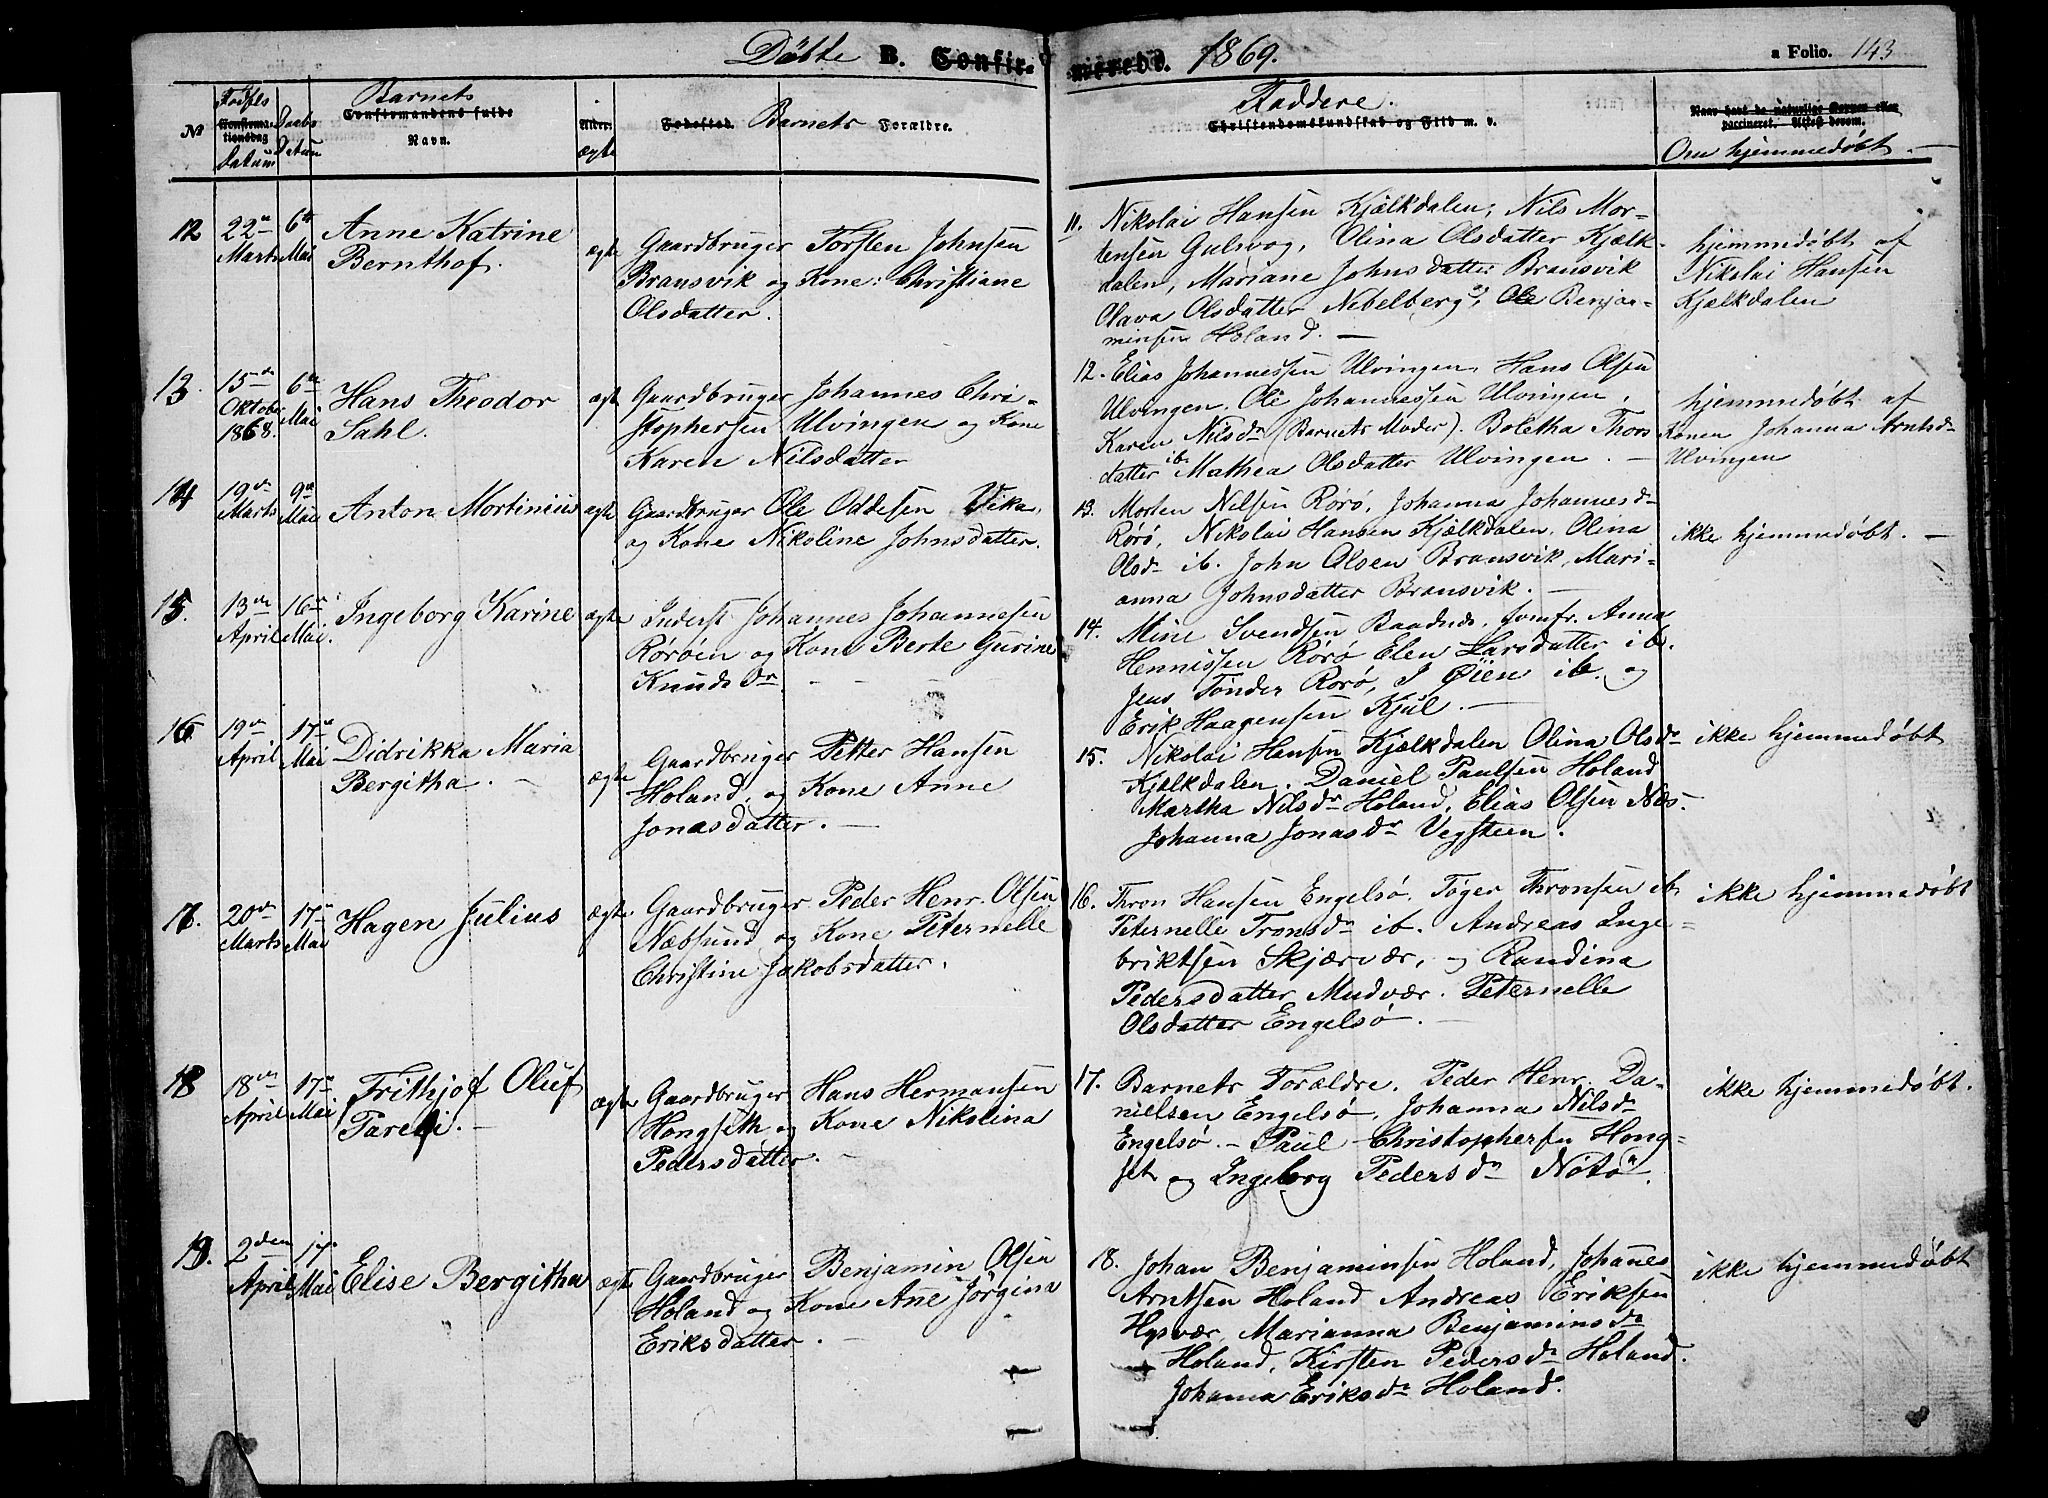 Döbte B. Confirmerede. 1869. a Folio. 143
No
Fødsels Datum
Confirmationsdag
Daabs Datum
Barnets
Confirmandens fulde
Navn.
Alder.
ægte
Fødested. Barnets Forældre.
Faddere.
Christendomskundskab og Flid m. v.
Naar havt de naturlige Kopper eller
vaccineret. Attest derom.
Om hjemmedøbt.
12 22de Marts 6te Mai
Anne Katrine
Bernthof.
ægte
Gaardbruger Torsten Johnsen
Bransvik og Kone: Christiane
Olsdatter.
11. Nikolai Hansen Kjælkdalen, Nils Mor-
tensen Gulsvog, Olina Olsdatter Kjælk-
dalen, Mariane Johnsdatter Bransvik
Olava Olsdatter Nebelberg, Ole Benja-
minsen Holand.
hjemmedøbt af
Nikolai Hansen
Kjælkdalen
13. 15de Oktober 1868. 6te Mai
Hans Theodor
Sahl.
ægt
Gaardbruger Johannes Chri-
stophersen Ulvingen og Kone
Karen Nilsdatter
12. Elias Johannessen Ulvingen, Hans Olsen
Ulvingen. Ole Johannessen Ulvingen,
Karen Nilsdr (Barnets Moder). Boletha Thors
datter ib. Mathea Olsdatter Ulvingen.
hjemmedøbt af
Konen Johanna Arntsd-
Ulvingen
14 19de Marts 9de Mai
Anton Mortinius
ægte
Gaardbruger Ole Oddesen Vika,
og Kone Nikoline Johnsdatter.
13. Morten Nilsen Rørö, Johanna Johannesdr
Rørö, Nikolai Hansen Kjælkdalen, Olina
Olsdr ib. John Olsen Bransvik, Mari-
anna Johnsdatter Bransvik.
ikke hjemmedøbt.
15. 13de April 16de Mai.
Ingeborg Karine
ægte
Inderst Johannes Johannesen
Röröen og Kone Berte Gurine
Knudsdr.
14. Mine Svendsen Baadsds. Jomfr. Anna
Hennissen Rörö Elen Larsdatter ib.
Jens Tönder Rörö, J Öien ib. og
Erik Haagensen Kjul.
16. 19de April 17de Mai
Didrikka Maria
Bergitha.
ægte
Gaardbruger Petter Hansen
Holand, og Kone Anne
Jonasdatter.
15. Nikolai Hansen Kjælkdalen Olina Olsdr
Kjælkdalen. Daniel Paulsen Holand
Martha Nilsdr Holand, Elias Olsen Næs.
Johanna Jonasdr Vegsteen.
ikke hjemmedøbt
17. 20de Marts 17de Mai
Hagen Julius
ægte
Gaardbruger Peder Henr. Olsen
Næbsund og Kone Peternelle
Christine Jakobsdatter.
16. Thron Hansen Engelsö. Töger Thronsen ib
Peternelle Tronsdr ib. Andreas Inge-
briktsen Skjærvær, og Randina
Pedersdatter Mudvær. Peternelle
Olsdatter Engelsö.
ikke hjemmedøbt
18 18de April 17de Mai
Frithjof Oluf
Pareli.
ægte
Gaardbruger Hans Hermansen
Hongseth og Kone Nikolina
Pedersdatter.
17. Barnets Forældre. Peder Henr. Da-
nielsen Engelsö, Johanna Nilsdr
Engelsö. - Paul Christophersen Hong-
set og Ingeborg Pedersdr Nötö.
ikke hjemmedøbt.
19. 2den April 17de Mai
Elise Bergitha
ægte
Gaardbruger Benjamin Olsen
Holand og Kone Ane Jörgina
Eriksdatter.
18. Johan Benjaminsen Holand, Johanes
Arntsen Holand Andreas Eriksen
Hysvær, Marianna Benjaminsdr
Holand, Kirsten Pedersdr Holand.
Johanna Eriksdr Holand.
ikke hjemmedøbt